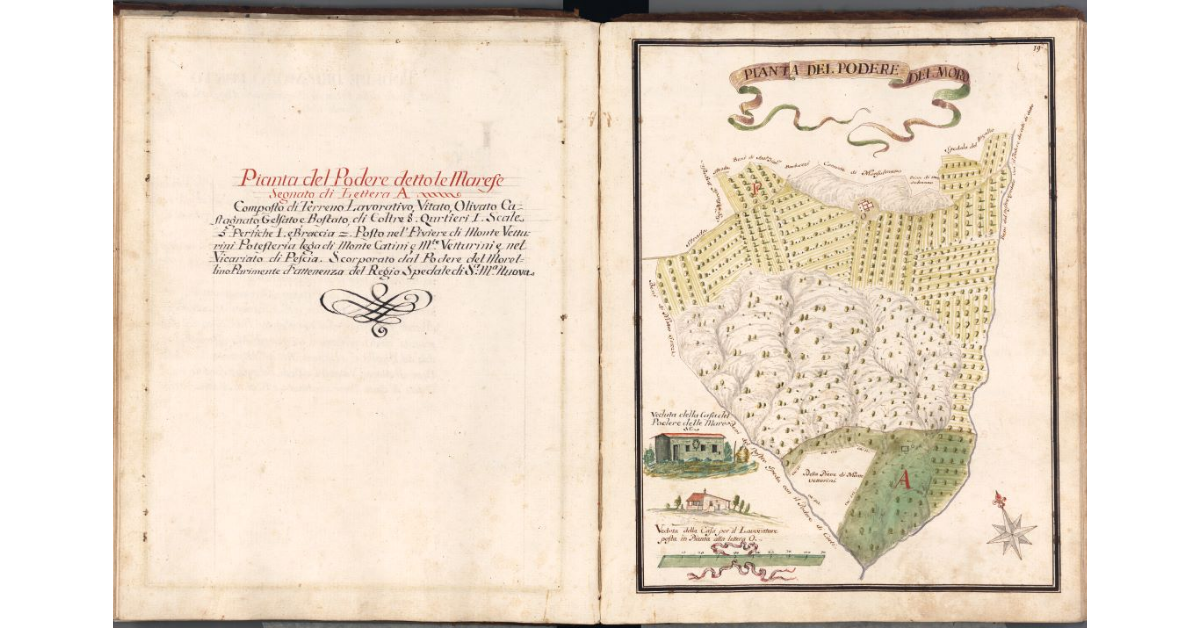 Pianta del Podere detto le Marese
Segnato di Lettera A
Composto di Terreno Lavorativo, Vitato, Olivato Ca-
stagnato, Gelsato e Bostato, di Coltre 8. Qurtieri I. Scale
5. Pertiche I. e Braccia =. Posto nel' Piviere di Monte Vettu-
rini Potesteria lega di Monte Catini e M.te Vetturini e nel
Vicariato di Pescia. Scorporato dal Podere del Morel-
lino Parimente d'attenenza del Regio Spedale di S.a M.a Nuova
19
PIANTA DEL PODERE DEL MORO
Spedale del
Comune di
P
O
Beni di
Veduta della Casa del
Podere delle Mare
Beta Pieve di Mon
Vetturini
A
Veduta della Casa per il Lavoratore
posta in Pianta alla lettera O.